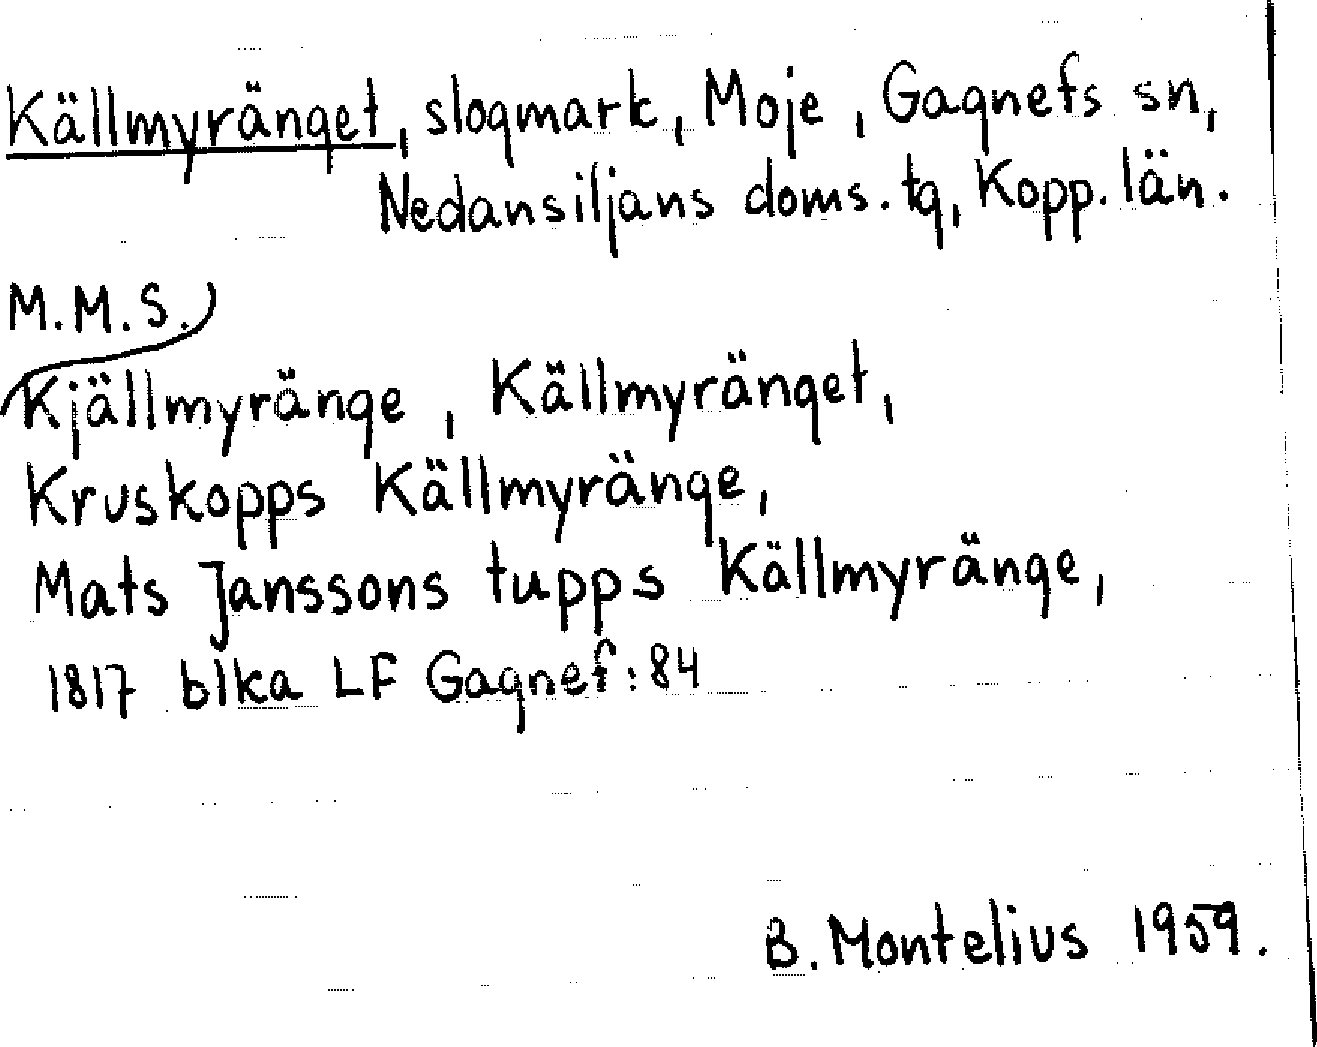 Källmyränget, slogmark, Moje, Gagnefs sn,
Nedansiljans doms. tg, Kopp. län.
M.M.S.
Kjällmyränge, Källmyränget,
Kruskopps Källmyränge,
Mats Janssons tupps Källmyränge,
1817 blka LF Gagnef: 84
B. Montelius 1959.